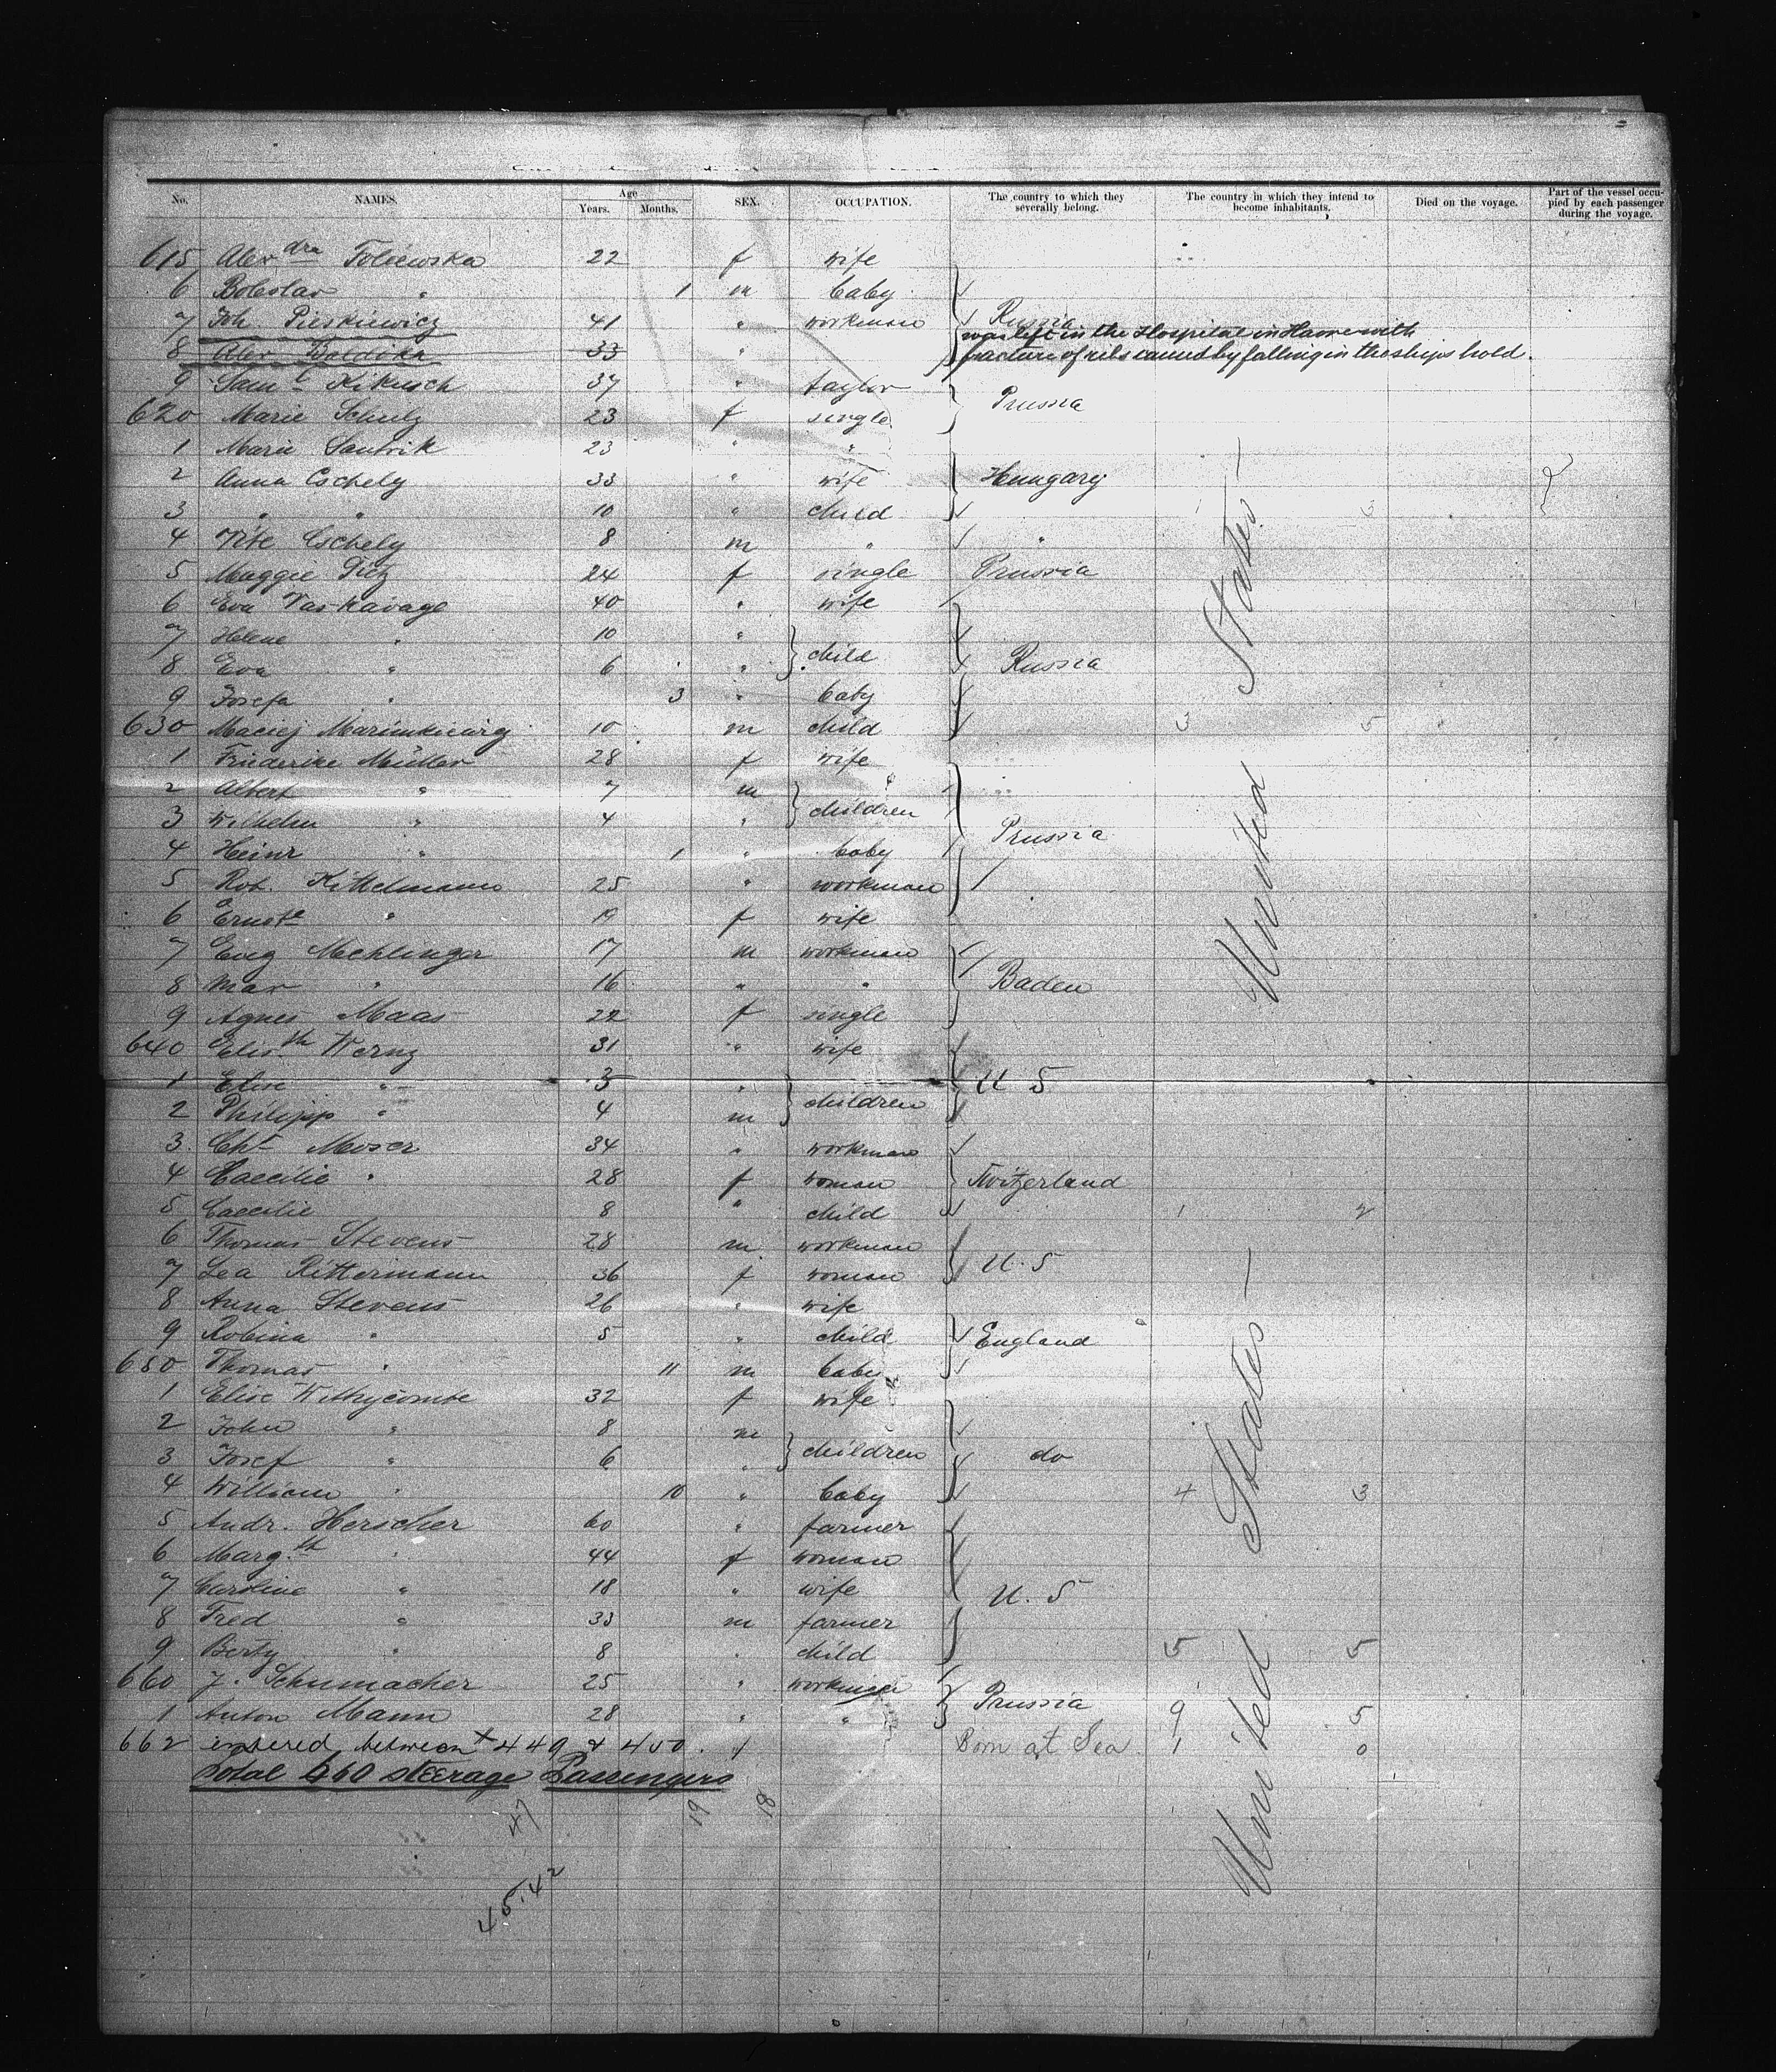 No. NAMES. Age Years. Months. SEX. OCCUPATION. The country to which they severally belong. The country in which they intend to become inhabitants. Died on the voyage. Part of the vessel occupied by each passenger during the voyage.
615 Alexdra Foliewska 22 f wife
6 Boleslav " 1 m baby
7 Joh Pieskiewicz 41 " workman Russia
was left in the Hospital in Havre with
8 Alex Baldika 33 " fracture of ribs caused by falling in the ships hold.
9 Saml Kikusch 37 " taylor
620 Marie Schulz 23 f single Prussia
1 Marie Santvik 23 " "
2 Anna Eschely 33 " wife Hungary
3 " " 10 " child
4 Eschely 8 m " "
5 Maggie Pietz 24 f single Prussia
6 Eva Vaskavage 40 " wife
7 Helene " 10 " child
8 Eva " 6 " Russia
9 Josefa " 3 " baby
630 Maciej Marinkiewicz 10 m child 3 5
1 Friederike Müller 28 f wife
2 Albert " 7 m children
3 Wilhelm " 4 " Prussia
4 Heinr " 1 " baby
5 Rob. Kittelmann 25 " workman
6 Ernste " 19 f wife
7 Eug Mehlinger 17 m workman
8 Max " 16 " " Baden
9 Agnes Maas 22 f single
640 Elisth Wernz 31 " wife
1 Elise " 3 " children U S
2 Philipp " 4 m
3 Chr Moser 34 " workman
4 Caecilie " 28 f woman Switzerland
5 Caecilie 8 " child 1 2
6 Thomas Stevens 28 m workman
7 Lea Rittermann 36 f woman U.S
8 Anna Stevens 26 " wife
9 Robina " 5 " child England
650 Thomas " 11 m baby
1 Elise Withycombe 32 f wife
2 John " 8 m children
3 Josef " 6 " do
4 William " 10 " baby 4 3
5 Andr. Herscher 60 " farmer
6 Margth " 44 f woman
7 Caroline " 18 " wife U.S
8 Fred " 33 m farmer
9 Berty " 8 " child 5 5
660 J. Schumacher 25 " workman
1 Anton Mann 28 " " Prussia 9 5
662 entered between 449 & 450. f Born at Sea 1 0
Total 660 steerage Passengers
United States
United States
47 19 18
45.42